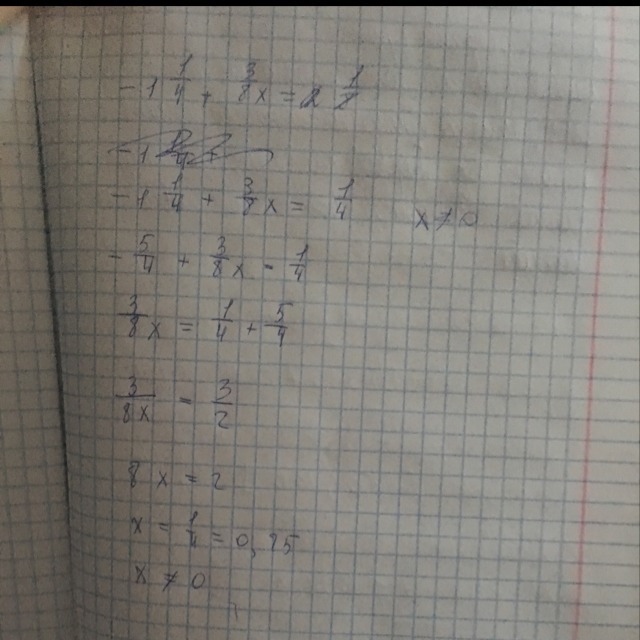 -1 1/4 + 3/8x = 1/4
-1 1/4 + 3/8x = 1/4 x ≠ 0
-5/4 + 3/8x = 1/4
3/8x = 1/4 + 5/4
3/8x = 3/2
8x = 2
x = 1/4 = 0,25
x ≠ 0